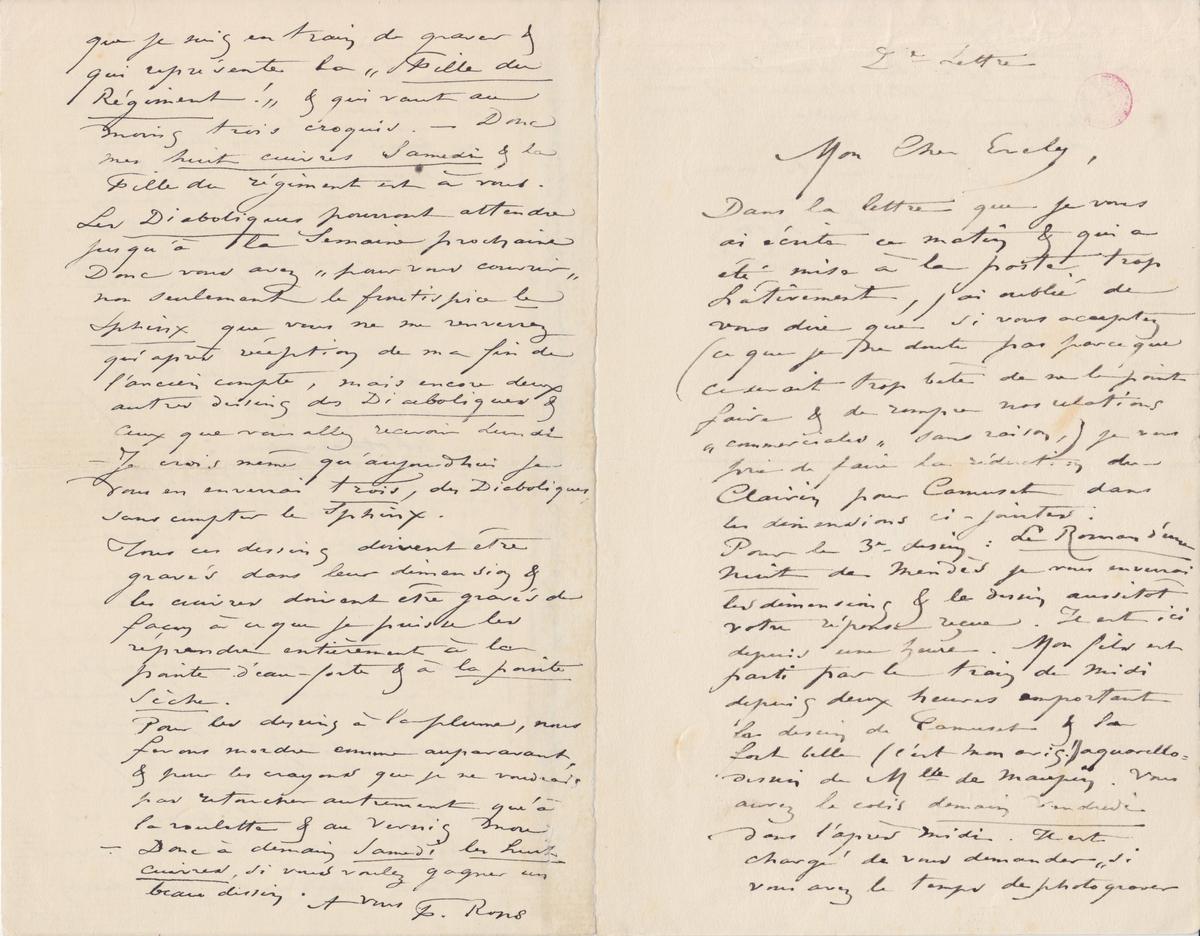 2e Lettre
Mon Cher Evely,
Dans la lettre que je vous
ai écrite ce matin & qui a
été mise à la poste trop
hâtivement, j'ai oublié de
vous dire que si vous acceptez
(ce que je ne doute pas parce que
ce serait trop bête de ne le point
faire & de rompre nos relations
"commerciales" sans raison,) je vous
prie de faire la réduction du
Clairin pour Camuset dans
les dimensions ci-jointes :
Pour le 3e dessin : Le Roman d'une
Nuit de Mendès je vous enverrai
les dimensions & le dessin aussitôt
votre réponse reçue. Il est ici
depuis une heure. Mon fils est
parti par le train de Midi
depuis deux heures emportant
les dessins de Camuset & la
fort belle (c'est mon orig.!) aquarello-
dessin de Mlle de Maupin. Vous
aurez le colis demain Vendredi
dans l'après midi. Il est
chargé de vous demander "si
vous avez le temps de photograver
que je suis en train de graver &
qui représente la "Fille du
Régiment!" & qui vaut au
moins trois croquis. — Donc
mes huit cuivres Samedi & la
Fille du régiment est à vous.
Les Diaboliques pourront attendre
jusqu'à la Semaine prochaine
Donc vous avez "pour vous couvrir"
non seulement le frontispice le
Sphinx que vous ne me renverrez
qu'après réception de ma fin de
l'ancien compte, mais encore deux
autres dessins des Diaboliques &
ceux que vous allez recevoir lundi
— Je crois même qu'aujourdhui je
vous en enverrai trois, des Diaboliques
sans compter le Sphinx.
Tous ces dessins doivent être
gravés dans leur dimension &
les cuivres doivent être gravés de
façon à ce que je puisse les
réprendre entièrement à la
pointe d'eau-forte & à la pointe
sèche.
Pour les dessins à la plume, nous
ferons mordre comme auparavant,
& pour les crayons que je ne voudrais
pas retoucher autrement qu'à
la roulette & au Vernis mou
— Donc à demain Samedi les huit
cuivres, si vous voulez gagner un
beau dessin.
A vous F. Rops